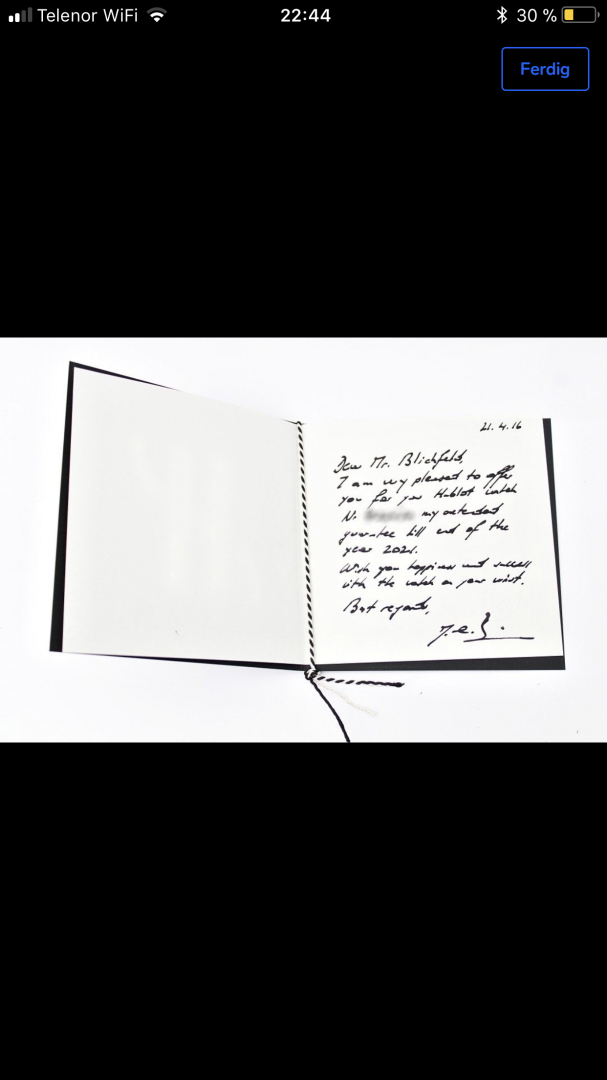 Telenor WiFi 22:44 30 %
Ferdig
21.4.16
Dear Mr. Blichfeldt,
I am very pleased to offer
you for your Hublot watch
N. my extended
guarantee till end of the
year 2021.
Wish you happiness and success
with the watch on your wrist.
Best regards,